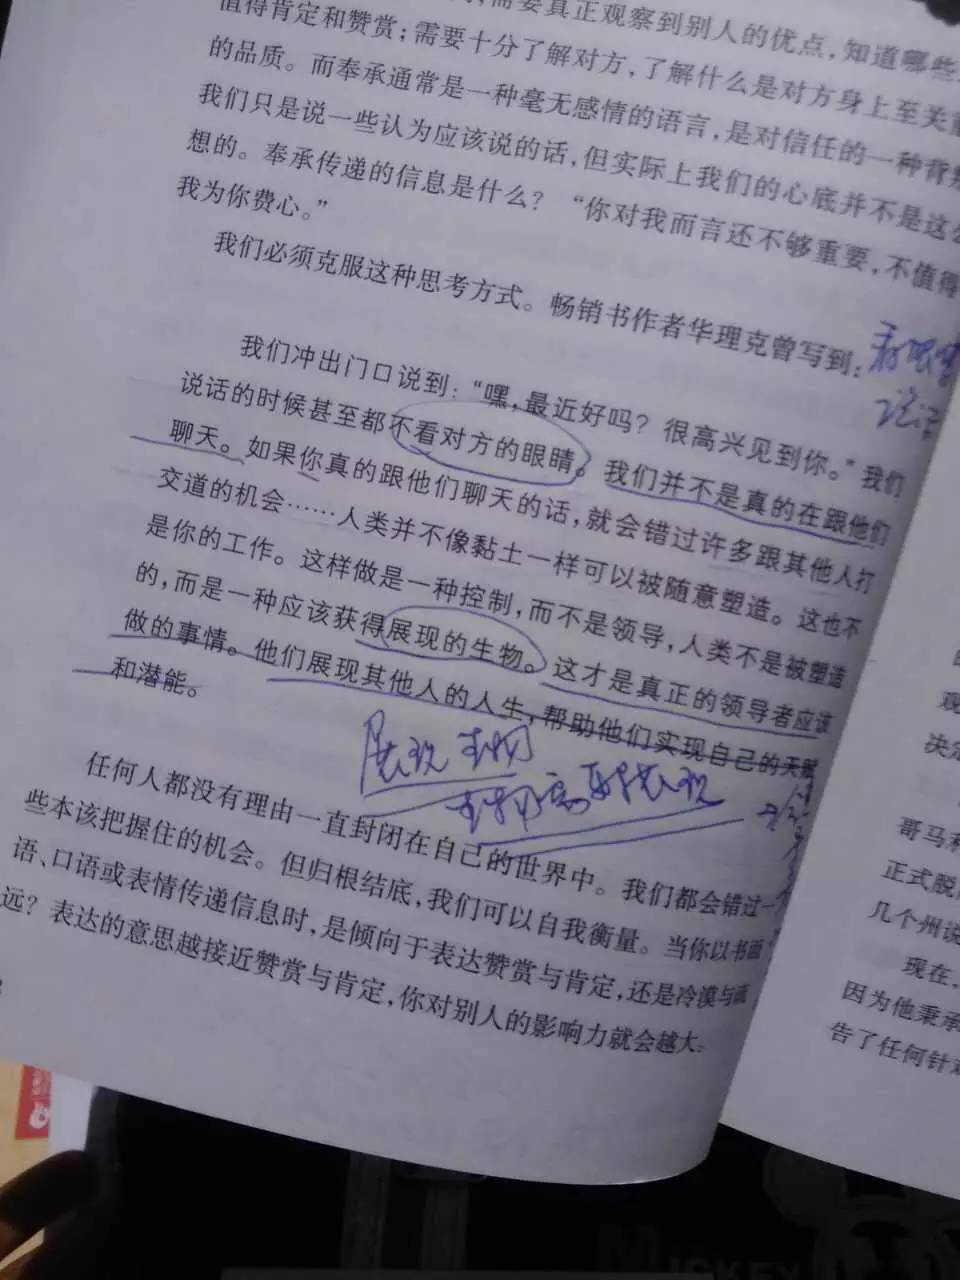 需要真正观察到别人的优点，知道哪些
值得肯定和赞赏；需要十分了解对方，了解什么是对方身上至关
的品质。而奉承通常是一种毫无感情的语言，是对信任的一种背
我们只是说一些认为应该说的话，但实际上我们的心底并不是这么
想的。奉承传递的信息是什么？“你对我而言还不够重要，不值得
我为你费心。”
我们必须克服这种思考方式。畅销书作者华理克曾写到：
看眼睛
说话
我们冲出门口说到：“嘿，最近好吗？很高兴见到你。”我们
说话的时候甚至都不看对方的眼睛。我们并不是真的在跟他们
聊天。如果你真的跟他们聊天的话，就会错过许多跟其他人打
交道的机会……人类并不像黏土一样可以被随意塑造。这也不
是你的工作。这样做是一种控制，而不是领导，人类不是被塑造
的，而是一种应该获得展现的生物。这才是真正的领导者应该
做的事情。他们展现其他人的人生，帮助他们实现自己的天赋
和潜能。
展现生物
生物需要展现
任何人都没有理由一直封闭在自己的世界中。我们都会错过一
些本该把握住的机会。但归根结底，我们可以自我衡量。当你以书面
语、口语或表情传递信息时，是倾向于表达赞赏与肯定，还是冷漠与疏
远？表达的意思越接近赞赏与肯定，你对别人的影响力就会越大。
观
决定
哥马利
正式脱
几个州说
现在，
因为他秉承
告了任何针对
MICKEY